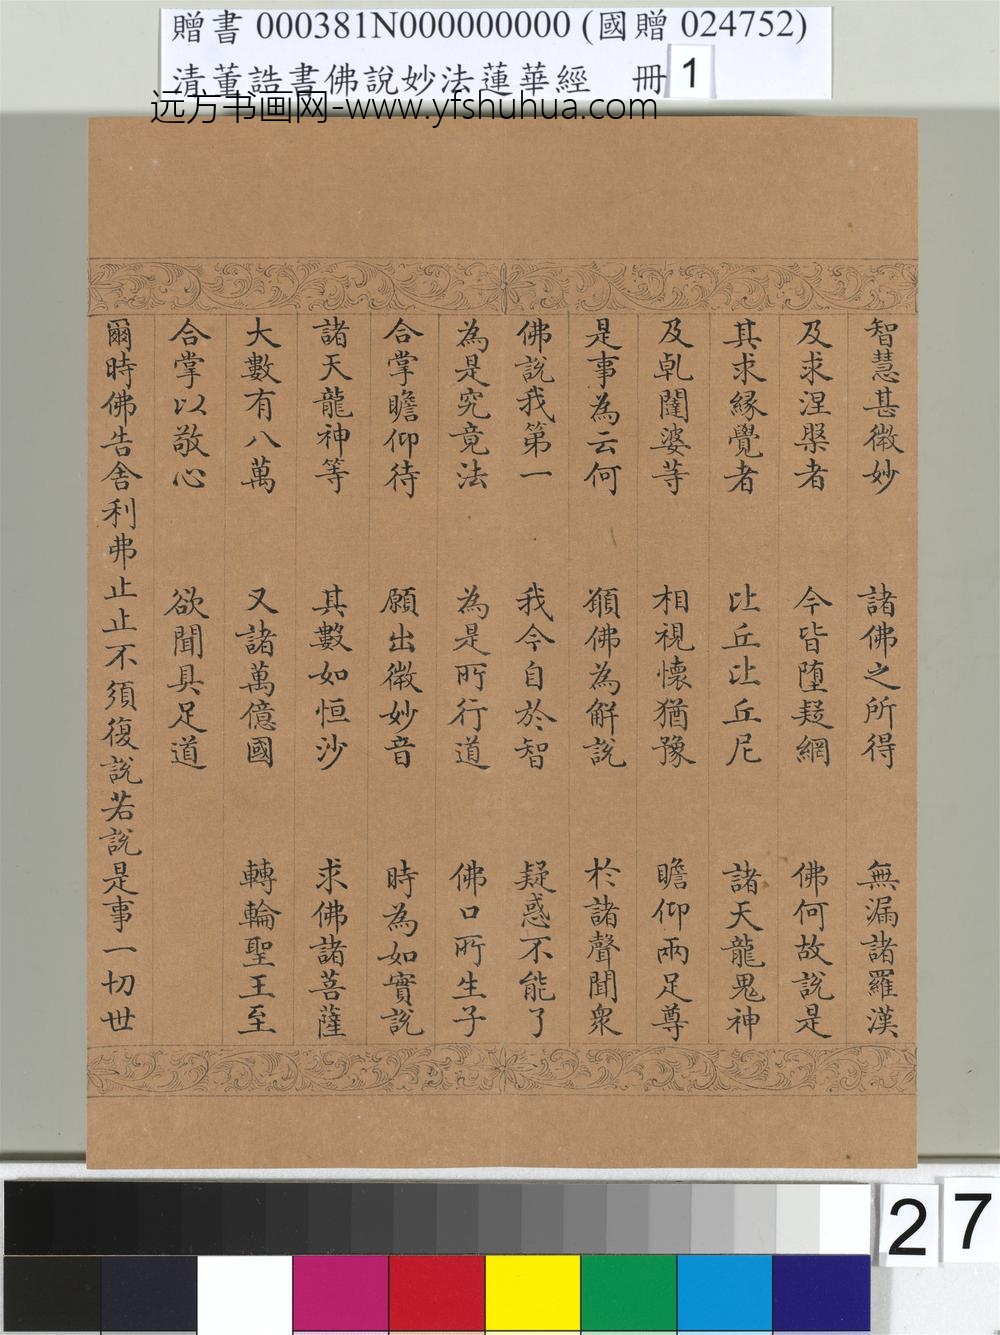 贈書 000381N000000000 (國贈 024752)
清董誥書佛說妙法蓮華經 冊 1
远方书画网-www.yfshuhua.com
智慧甚微妙 諸佛之所得 無漏諸羅漢
及求涅槃者 今皆墮疑網 佛何故說是
其求緣覺者 比丘比丘尼 諸天龍鬼神
及乹闥婆等 相視懷猶豫 瞻仰兩足尊
是事為云何 願佛為解說 於諸聲聞眾
佛說我第一 我今自於智 疑惑不能了
為是究竟法 為是所行道 佛口所生子
合掌瞻仰待 願出微妙音 時為如實說
諸天龍神等 其數如恒沙 求佛諸菩薩
大數有八萬 又諸萬億國 轉輪聖王至
合掌以敬心 欲聞具足道
爾時佛告舍利弗止止不須復說若說是事一切世
27